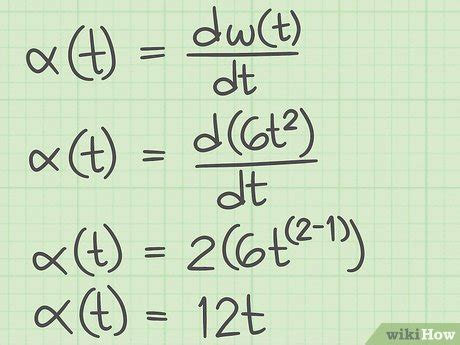 α(t) = dw(t)/dt
α(t) = d(6t²)/dt
α(t) = 2(6t⁽²⁻¹⁾)
α(t) = 12t
wikiHow